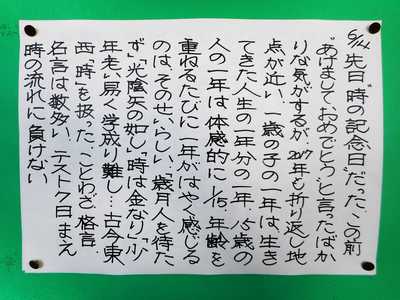 6/14 先日"時の記念日"だった。この前
"あけましておめでとう"と言ったばか
りな気がするが 2017年も折り返し地
点が近い。一歳の子の一年は、生き
てきた人生の一年分の一年、15歳の
人の一年は体感的に1/15。年齢を
重ねるたびに一年がはやく感じる
のは、そのせいらしい。「歳月人を待た
ず」「光陰矢の如し」「時は金なり」「少
年老い易く学成り難し」…古今東
西、「時」を扱った、ことわざ、格言、
名言は数多い。テスト7日まえ
時の流れに負けない